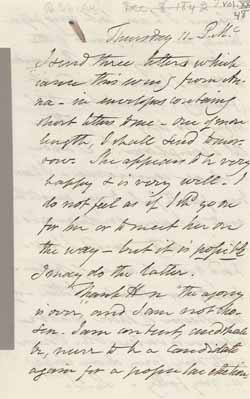 Dec. 8 1842
Thursday 11 P. M.
I send three letters which
came this evng from An-
na – in envelopes containing
short letters to me – one of more
length, I shall send tomor-
row. She appears to be very
happy & is very well. I
do not feel as if I shd go on
for her or to meet her on
the way – but it is possible
I may do the latter.
Thank H n "the agony
is over, and I am not cho-
sen. I am content, and shall
be, never to be a candidate
again for a popular election